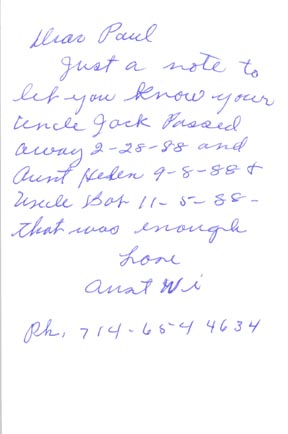 Dear Paul
Just a note to
let you know your
Uncle Jack Passed
away 2-28-88 and
Aunt Helen 9-8-88 +
Uncle Bob 11-5-88-
that was enough
Love
Aunt Wi
Ph. 714-654 4634